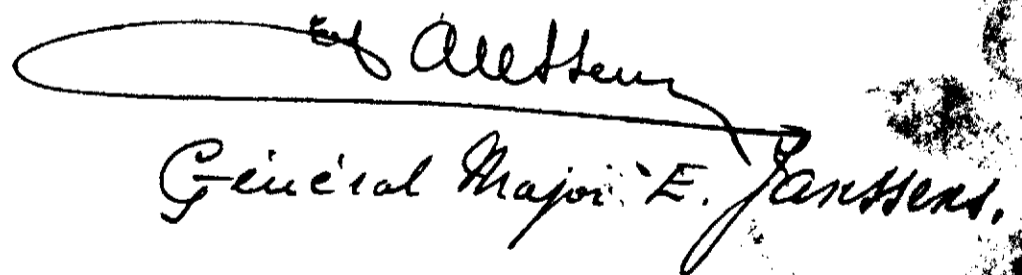 Général Major E. Janssens.